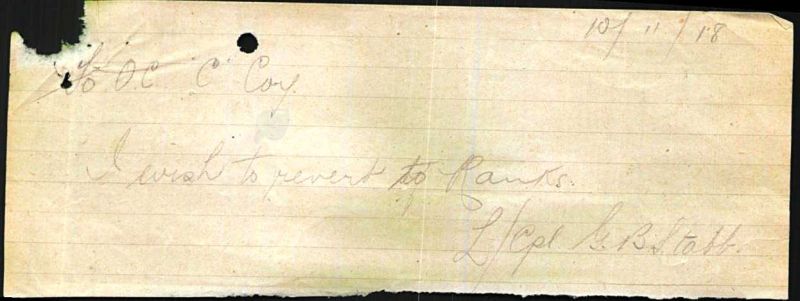 10/11/18
To O.C "C" Coy.
I wish to revert to Ranks.
L/Cpl G. B. Stabb.